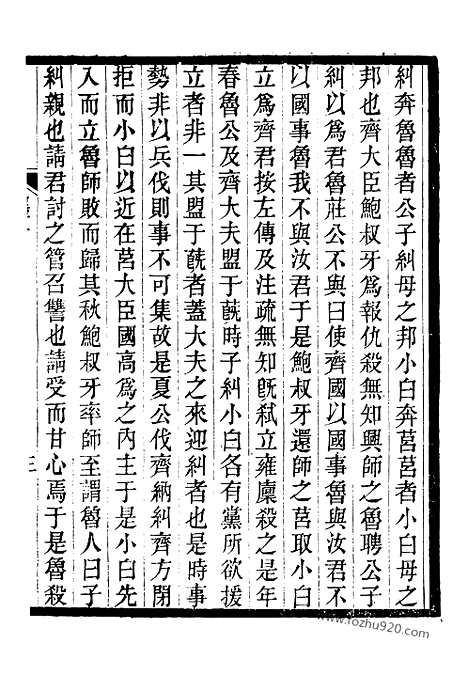 糾奔魯魯者公子糾母之邦小白奔莒莒者小白母之
邦也齊大臣鮑叔牙爲報仇殺無知興師之魯聘公子
糾以爲君魯莊公不與曰使齊國以國事魯與汝君不
以國事魯我不與汝君于是鮑叔牙還師之莒取小白
立爲齊君按左傳及注疏無知旣弑立雍廩殺之是年
春魯公及齊大夫盟于蔇時子糾小白各有黨所欲援
立者非一其盟于蔇者蓋大夫之來迎糾者也是時事
勢非以兵伐則事不可集故是夏公伐齊納糾齊方閉
拒而小白以近在莒大臣國高爲之內主于是小白先
入而立魯師敗而歸其秋鮑叔牙率師至謂魯人曰子
糾親也請君討之管召讐也請受而甘心焉于是魯殺
三
www.fozhu920.com